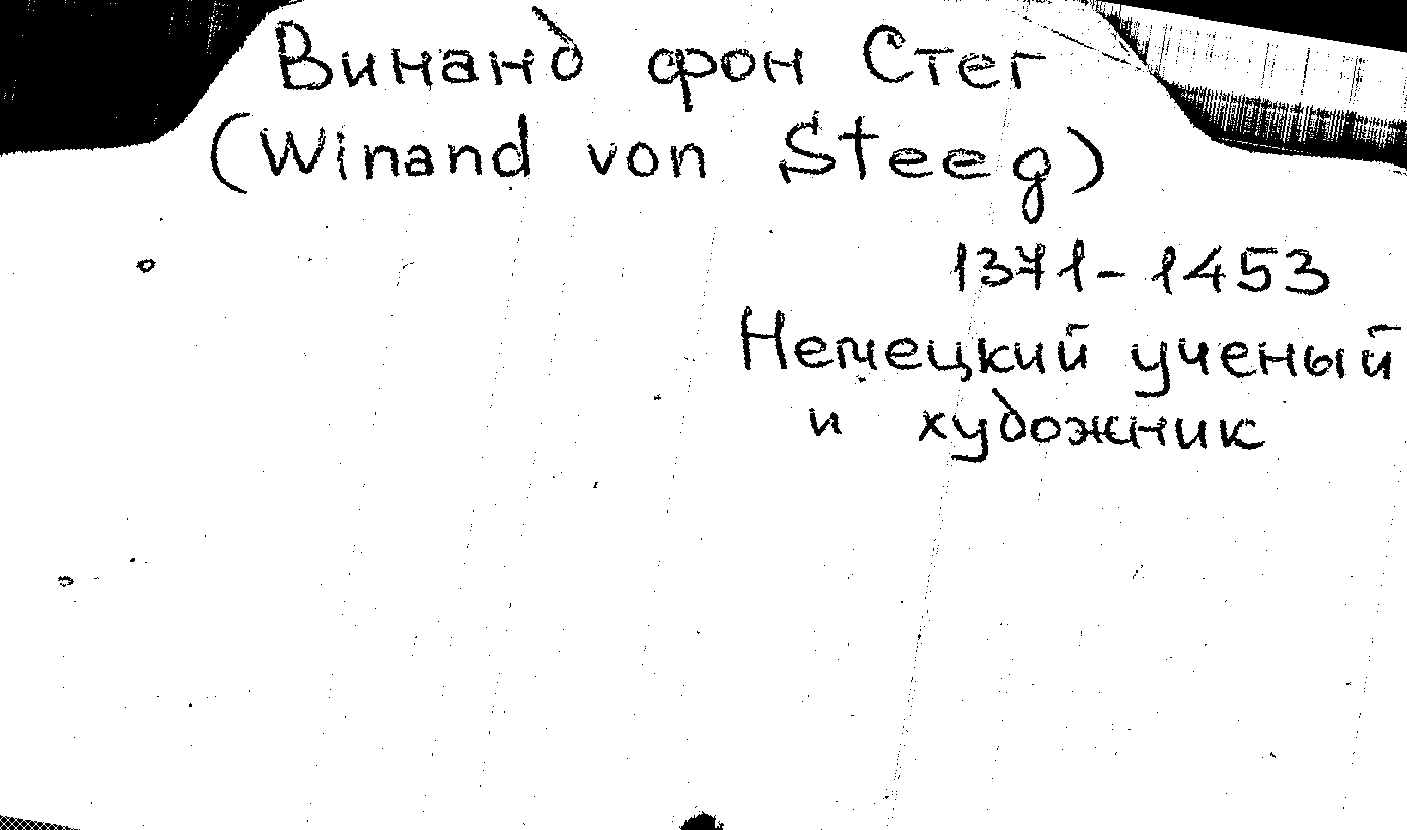 Винанд фон Стег
(Winand von Steeg)
1371-1453
Немецкий ученый
и художник